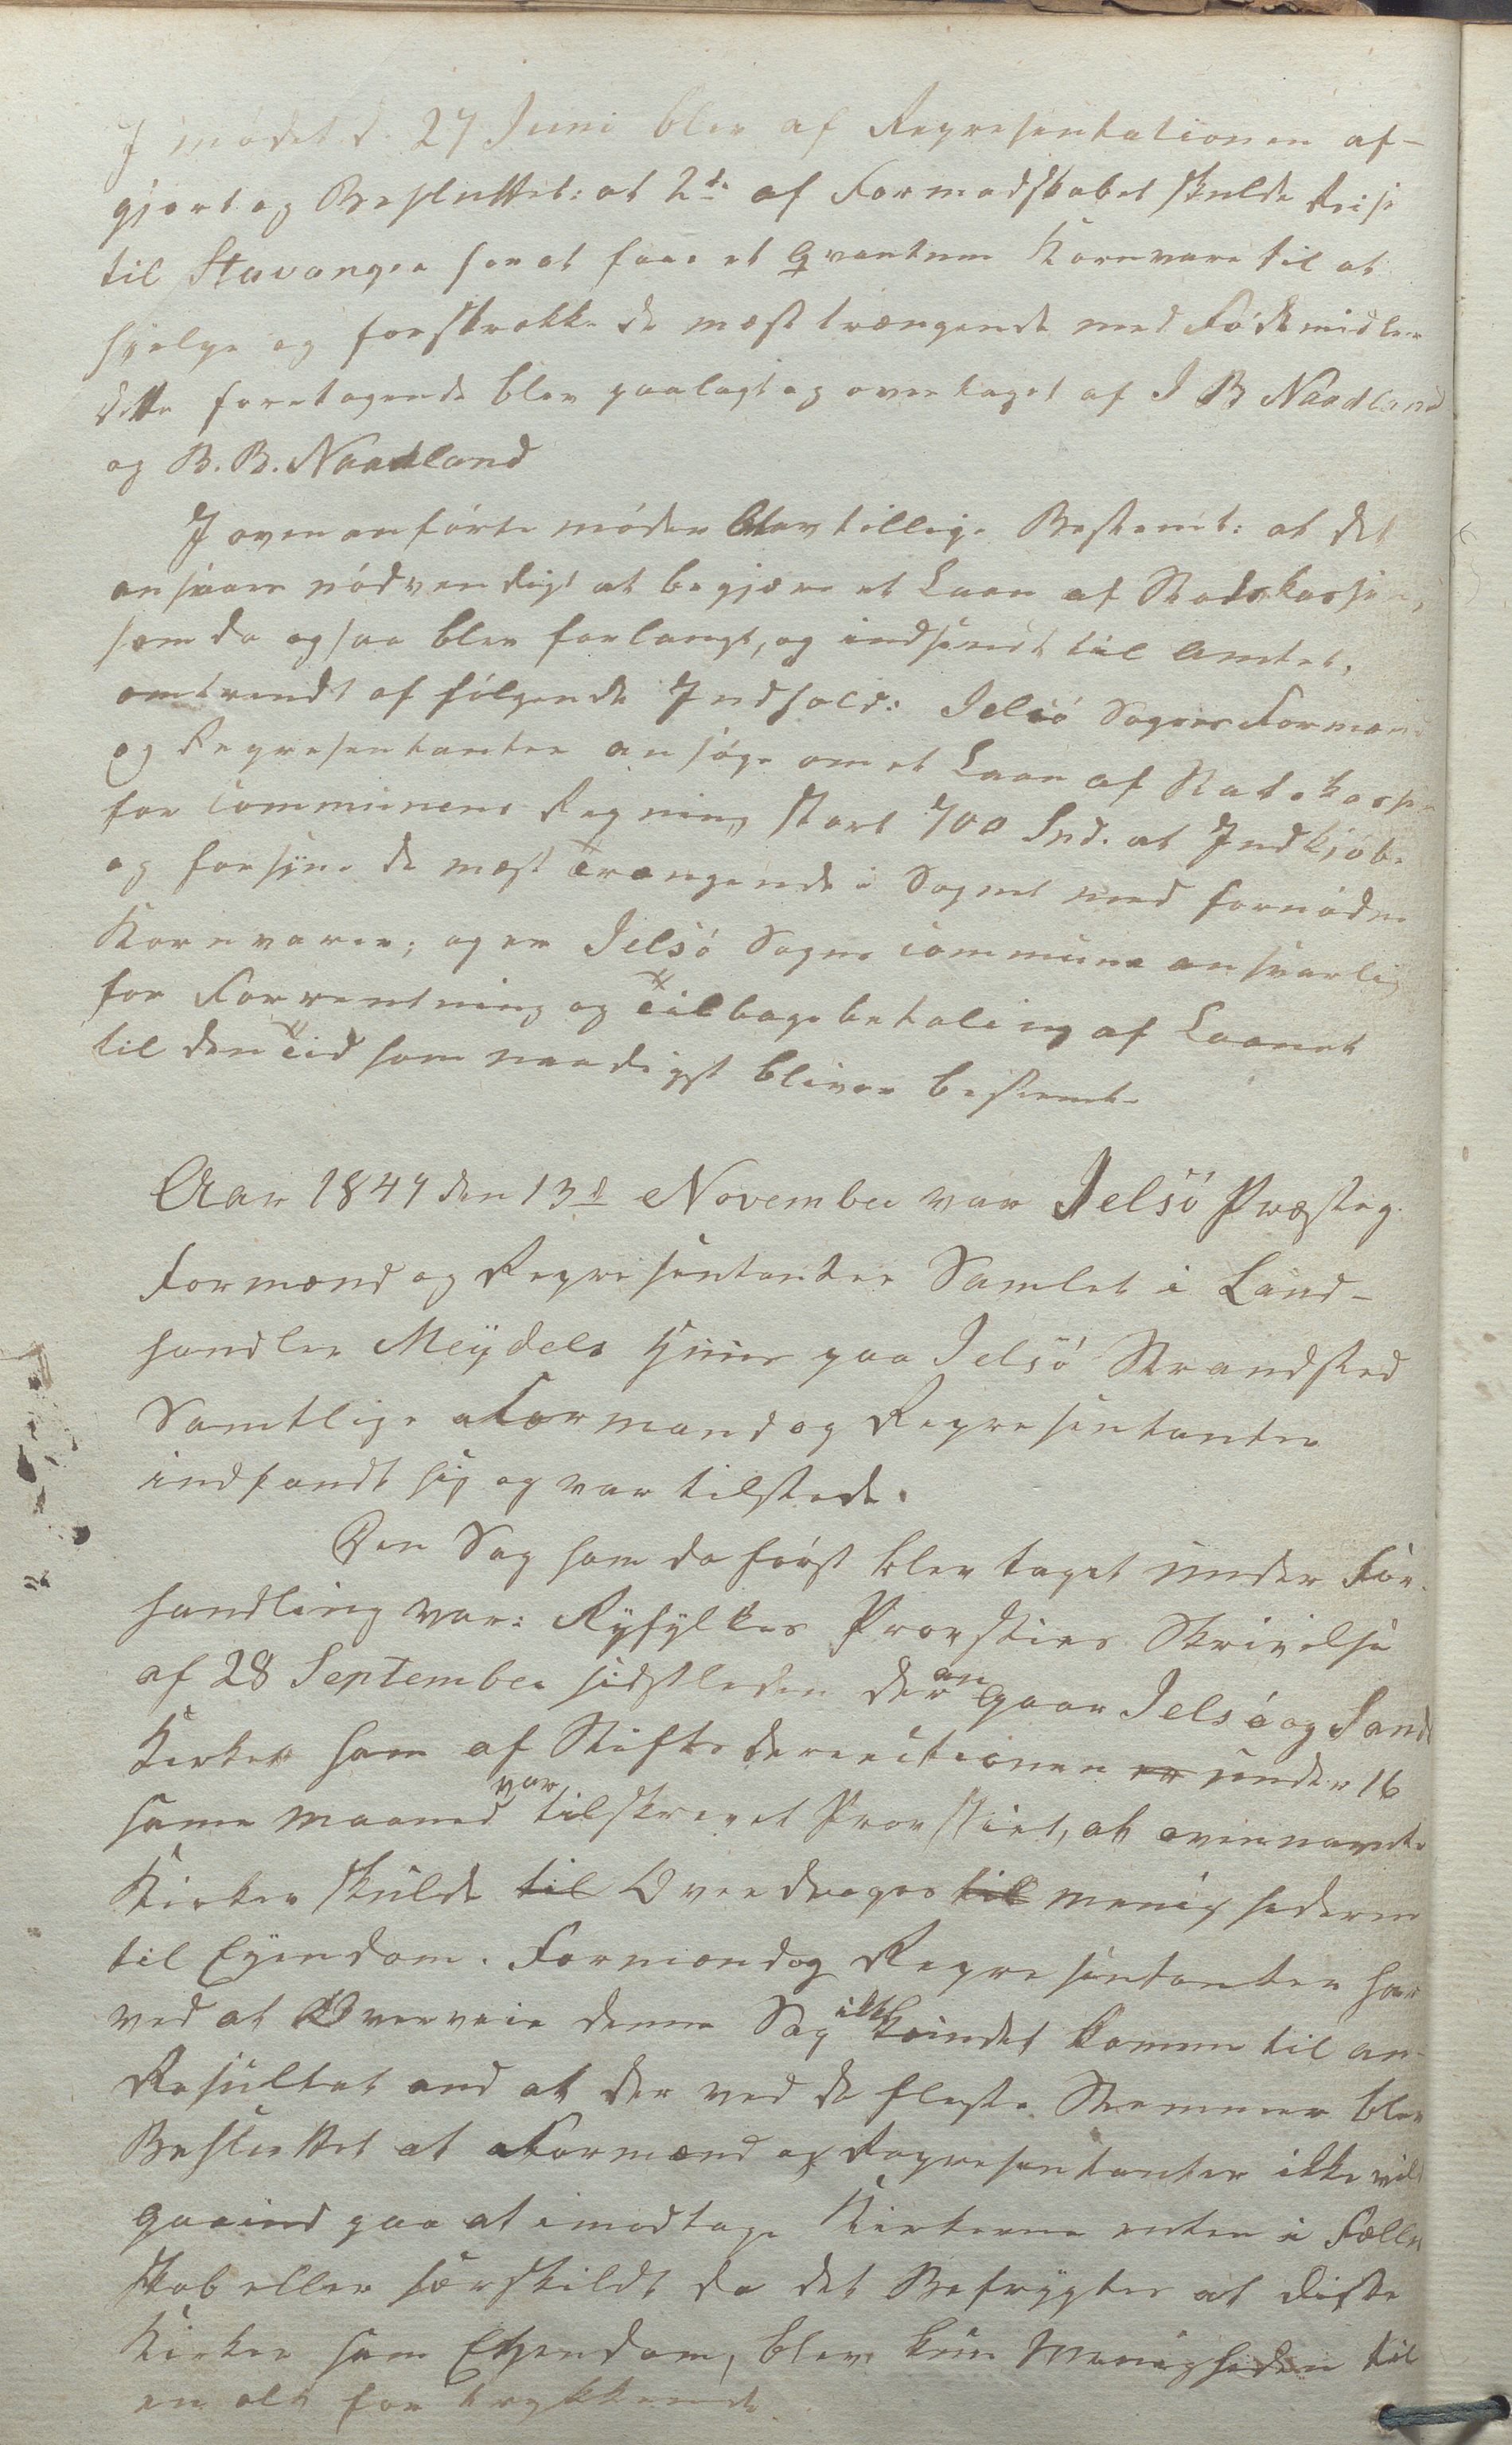 I mødet d. 27 Juni blev af Representationen af-
gjort og Besluttet: at 2de af Formadskabet skulde Reise
til Stavanger for at faae et Qvantum Kornvare til at
hjelpe og forstrække de mest trængende med Fødemidler
dette foretagende blev paalagt og overtaget af I B Naadland
og B. B. Naadland
I ovenanførte møder blev tillige Bestemt: at det
ansaaes nødvendigt at begjære et Laan af Stadskassen,
som da ogsaa blev forlangt, og indsendt til Amtet,
omtrendt af følgende Indhold: Jelsø Sognes Formænd
og Representanter ansøge om et Laan af Statskassen
for Communens Regning stort 700 Spd. at Indkjøbe
og forsyne de mest Trængende i Sognet med fornødne
Kornvarer; og er Jelsø Sogns Commune ansvarlig
for Forrentning og Tilbagebetaling af Laanet
til den Tid som naadigst bliver bestemt.
Aar 1847 den 13d November var Jelsø Præsteg.
Formænd og Representanter Samlet i Land-
handler Meÿdels Huus paa Jelsø Strandsted
Samtlige Formænd og Representanter
indfandt sig og var tilstede.
Den Sag som da først blev taget under For-
handling var: Ryfylkes Provsties Skrivelse
af 28 September sidstleden der an gaar Jelsø og Sands
Kirker som af Stifts derecitionen er under 16
same maaned var tilskrevet Provstiet, at ovennævnte
Kirker skulde til Overdrages til menighederne
til Eyendom. Formænd og Representanter har
ved at Overveie denne Sag ikke kundet komme til an-
Resultat end at der ved de fleste Stemmer blev
Besluttet at Formænd og Representanter ikke vild
gaa ind paa at imodtage Kirkerne enten i Fælles
skab eller særskildt da det Befrygtes at disse
Kirker som Eyendom, blev kun Menigheden til
en alt for trykkende